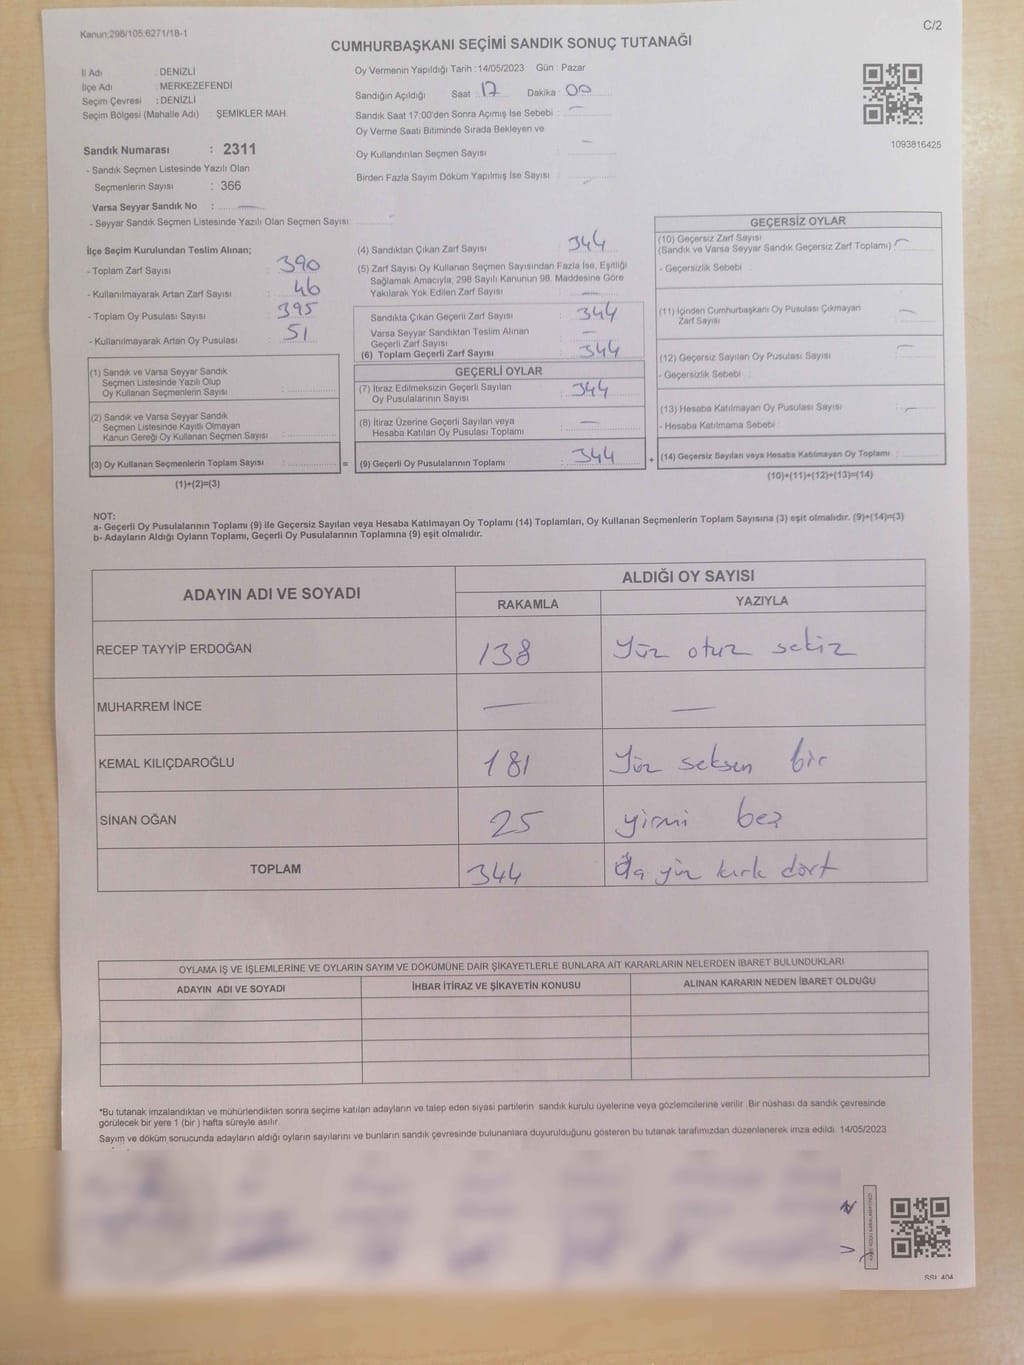 Kanun:298/105:6271/18-1
C/2
CUMHURBAŞKANI SEÇİMİ SANDIK SONUÇ TUTANAĞI
İl Adı : DENİZLİ
İlçe Adı : MERKEZEFENDİ
Seçim Çevresi : DENİZLİ
Seçim Bölgesi (Mahalle Adı) : ŞEMİKLER MAH.
Sandık Numarası : 2311
- Sandık Seçmen Listesinde Yazılı Olan
Seçmenlerin Sayısı : 366
Varsa Seyyar Sandık No :
- Seyyar Sandık Seçmen Listesinde Yazılı Olan Seçmen Sayısı:
Oy Vermenin Yapıldığı Tarih : 14/05/2023 Gün : Pazar
Sandığın Açıldığı Saat : 17 Dakika : 00
Sandık Saat 17:00'den Sonra Açımış İse Sebebi :
Oy Verme Saati Bitiminde Sırada Bekleyen ve
Oy Kullandırılan Seçmen Sayısı
Birden Fazla Sayım Döküm Yapılmış İse Sayısı
1093816425
İlçe Seçim Kurulundan Teslim Alınan;
- Toplam Zarf Sayısı : 390
- Kullanılmayarak Artan Zarf Sayısı : 46
- Toplam Oy Pusulası Sayısı : 395
- Kullanılmayarak Artan Oy Pusulası : 51
(1) Sandık ve Varsa Seyyar Sandık
Seçmen Listesinde Yazılı Olup
Oy Kullanan Seçmenlerin Sayısı :
(2) Sandık ve Varsa Seyyar Sandık
Seçmen Listesinde Kayıtlı Olmayan
Kanun Gereği Oy Kullanan Seçmen Sayısı :
(3) Oy Kullanan Seçmenlerin Toplam Sayısı : =
(1)+(2)=(3)
(4) Sandıktan Çıkan Zarf Sayısı : 344
(5) Zarf Sayısı Oy Kullanan Seçmen Sayısından Fazla İse, Eşitliği
Sağlamak Amacıyla, 298 Sayılı Kanunun 98. Maddesine Göre
Yakılarak Yok Edilen Zarf Sayısı :
Sandıkta Çıkan Geçerli Zarf Sayısı : 344
Varsa Seyyar Sandıktan Teslim Alınan
Geçerli Zarf Sayısı :
(6) Toplam Geçerli Zarf Sayısı : 344
GEÇERLİ OYLAR
(7) İtiraz Edilmeksizin Geçerli Sayılan
Oy Pusulalarının Sayısı : 344
(8) İtiraz Üzerine Geçerli Sayılan veya
Hesaba Katılan Oy Pusulası Toplamı :
(9) Geçerli Oy Pusulalarının Toplamı : 344 +
GEÇERSİZ OYLAR
(10) Geçersiz Zarf Sayısı
(Sandık ve Varsa Seyyar Sandık Geçersiz Zarf Toplamı) :
- Geçersizlik Sebebi :
(11) İçinden Cumhurbaşkanı Oy Pusulası Çıkmayan
Zarf Sayısı :
(12) Geçersiz Sayılan Oy Pusulası Sayısı :
- Geçersizlik Sebebi :
(13) Hesaba Katılmayan Oy Pusulası Sayısı :
- Hesaba Katılmama Sebebi :
(14) Geçersiz Sayılan veya Hesaba Katılmayan Oy Toplamı :
(10)+(11)+(12)+(13)=(14)
NOT:
a- Geçerli Oy Pusulalarının Toplamı (9) ile Geçersiz Sayılan veya Hesaba Katılmayan Oy Toplamı (14) Toplamları, Oy Kullanan Seçmenlerin Toplam Sayısına (3) eşit olmalıdır. (9)+(14)=(3)
b- Adayların Aldığı Oyların Toplamı, Geçerli Oy Pusulalarının Toplamına (9) eşit olmalıdır.
ADAYIN ADI VE SOYADI
ALDIĞI OY SAYISI
RAKAMLA
YAZIYLA
RECEP TAYYİP ERDOĞAN 138 Yüz otuz sekiz
MUHARREM İNCE — —
KEMAL KILIÇDAROĞLU 181 Yüz seksen bir
SİNAN OĞAN 25 yirmi beş
TOPLAM 344 Üç yüz kırk dört
OYLAMA İŞ VE İŞLEMLERİNE VE OYLARIN SAYIM VE DÖKÜMÜNE DAİR ŞİKAYETLERLE BUNLARA AİT KARARLARIN NELERDEN İBARET BULUNDUKLARI
ADAYIN ADI VE SOYADI
İHBAR İTİRAZ VE ŞİKAYETİN KONUSU
ALINAN KARARIN NEDEN İBARET OLDUĞU
*Bu tutanak imzalandıktan ve mühürlendikten sonra seçime katılan adayların ve talep eden siyasi partilerin sandık kurulu üyelerine veya gözlemcilerine verilir. Bir nüshası da sandık çevresinde
görülecek bir yere 1 (bir ) hafta süreyle asılır.
Sayım ve döküm sonucunda adayların aldığı oyların sayılarını ve bunların sandık çevresinde bulunanlara duyurulduğunu gösteren bu tutanak tarafımızdan düzenlenerek imza edildi. 14/05/2023